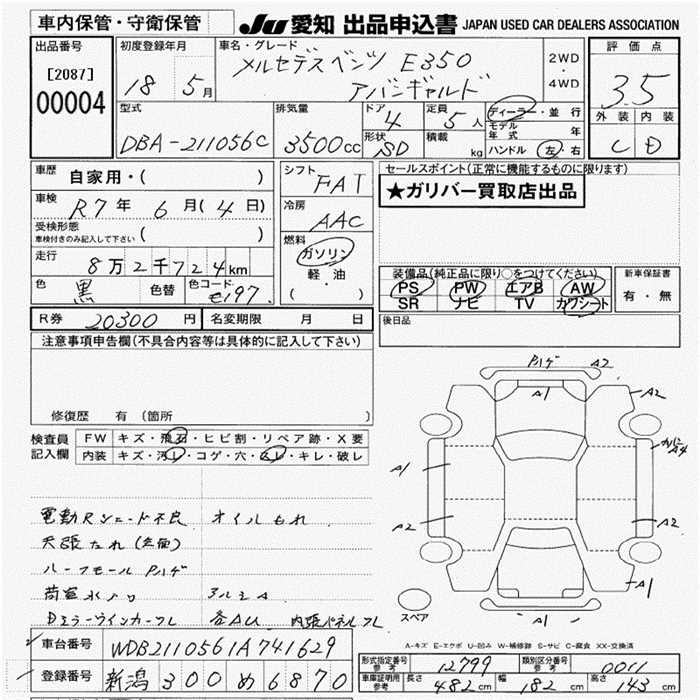 車内保管・守衛保管
JU 愛知 出品申込書 JAPAN USED CAR DEALERS ASSOCIATION
出品番号
[2087]
00004
初度登録年月
18 5月
車名・グレード
メルセデスベンツ E350
アバンギャルド
2WD
・
4WD
評価点
3.5
外装 内装
C D
型式
DBA-211056C
排気量
3500cc
ドア
4
形状
SD
定員
5人
積載
kg
ディーラー・並行
モデル年式 年
ハンドル 左・右
車歴
自家用・( )
車検
R7年 6月(4日)
受検形態
車検付きのみ記入して下さい ( )
走行
8万2千724km
色 黒 色替 色コード C197
シフト
FAT
冷房
AAC
燃料
ガソリン
軽・油
・( )
セールスポイント(正常に機能するものに限ります)
★ガリバー買取店出品
装備品(純正品に限り○をつけてください)
PS PW エアB AW
SR ナビ TV カワシート
新車保証書
有・無
R券 20300円 名変期限 月 日
後日品
注意事項申告欄(不具合内容等は具体的に記入して下さい)
修復歴 有(箇所 )
検査員
記入欄
FW キズ・飛石・ヒビ割・リペア跡・X要
内装 キズ・汚レ・コゲ・穴・スレ・キレ・破レ
電動Rシェード不良 オイルもれ
天張たれ(全面)
ハーフモールPハゲ
荷室水ノリ アルミA
Dミラーウインカーワレ 各AU 内張パネルワレ
Pハゲ A2
A1
A2
A4
A1
A2
A2
A1
A1
スペア
A-キズ E-エクボ U-凹み W-補修跡 S-サビ C-腐食 XX-交換済
車台番号 WDB2110561A741629
登録番号 新潟300め6870
形式指定番号 参考 12799 類別区分番号 参考 0011
車庫証明用 参考 長さ 482cm 幅 182cm 高さ 143cm